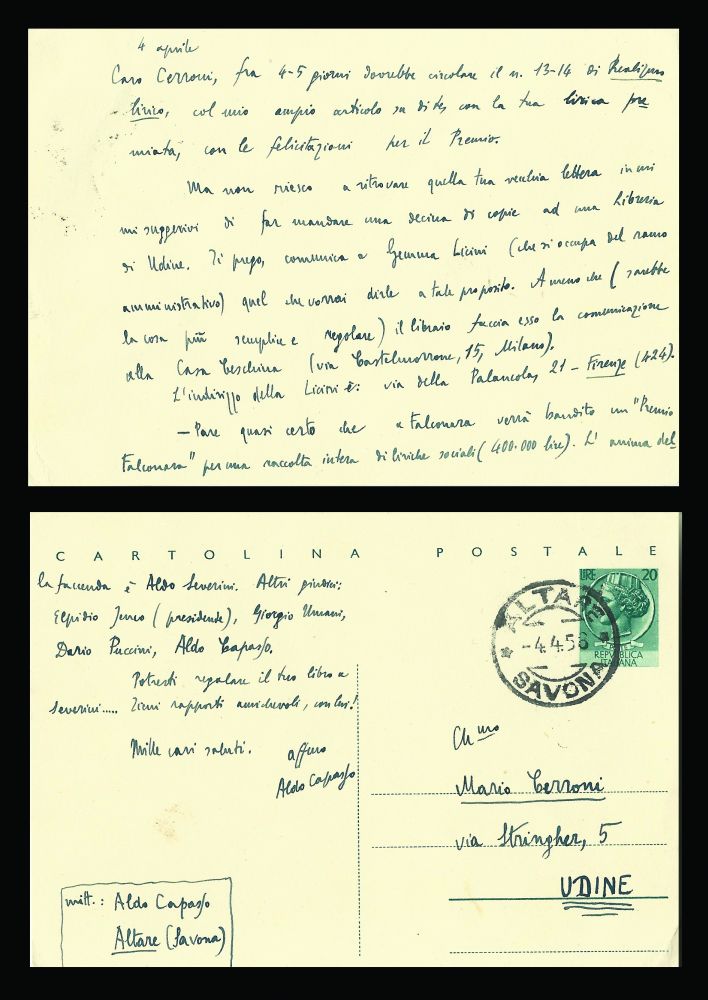 4 aprile
Caro Cerroni, fra 4-5 giorni dovrebbe circolare il n. 13-14 di Realismo
lirico, col mio ampio articolo su di te, con la tua lirica pre
miata, con le felicitazioni per il Premio.
Ma non riesco a ritrovare quella tua vecchia lettera in cui
mi suggerivi di far mandare una decina di copie ad una Libreria
di Udine. Ti prego, comunica a Gemma Licini (che si occupa del ramo
amministrativo) quel che vorrai dirle a tale proposito. A meno che (sarebbe
la cosa più semplice e regolare) il libraio faccia esso la comunicazione
alla Casa Ceschina (via Castelmorrone, 15, Milano).
L'indirizzo della Licini è: via della Palancola, 21 - Firenze (424).
- Pare quasi certo che a Falconara verrà bandito un "Premio
Falconara" per una raccolta intera di liriche sociali (400.000 lire). L'anima del
CARTOLINA POSTALE
la faccenda è Aldo Severini. Altri giudici:
Elpidio Jenco (presidente), Giorgio Umani,
Dario Puccini, Aldo Capasso.
Potresti regalare il tuo libro a
Severini..... Tieni rapporti amichevoli, con lui!
Mille cari saluti.
aff.mo
Aldo Capasso
mitt.: Aldo Capasso
Altare (Savona)
LIRE 20
REPVBBLICA
ITALIANA
ALTARE
-4.4.58
SAVONA
Ch.mo
Mario Cerroni
via Stringher, 5
UDINE